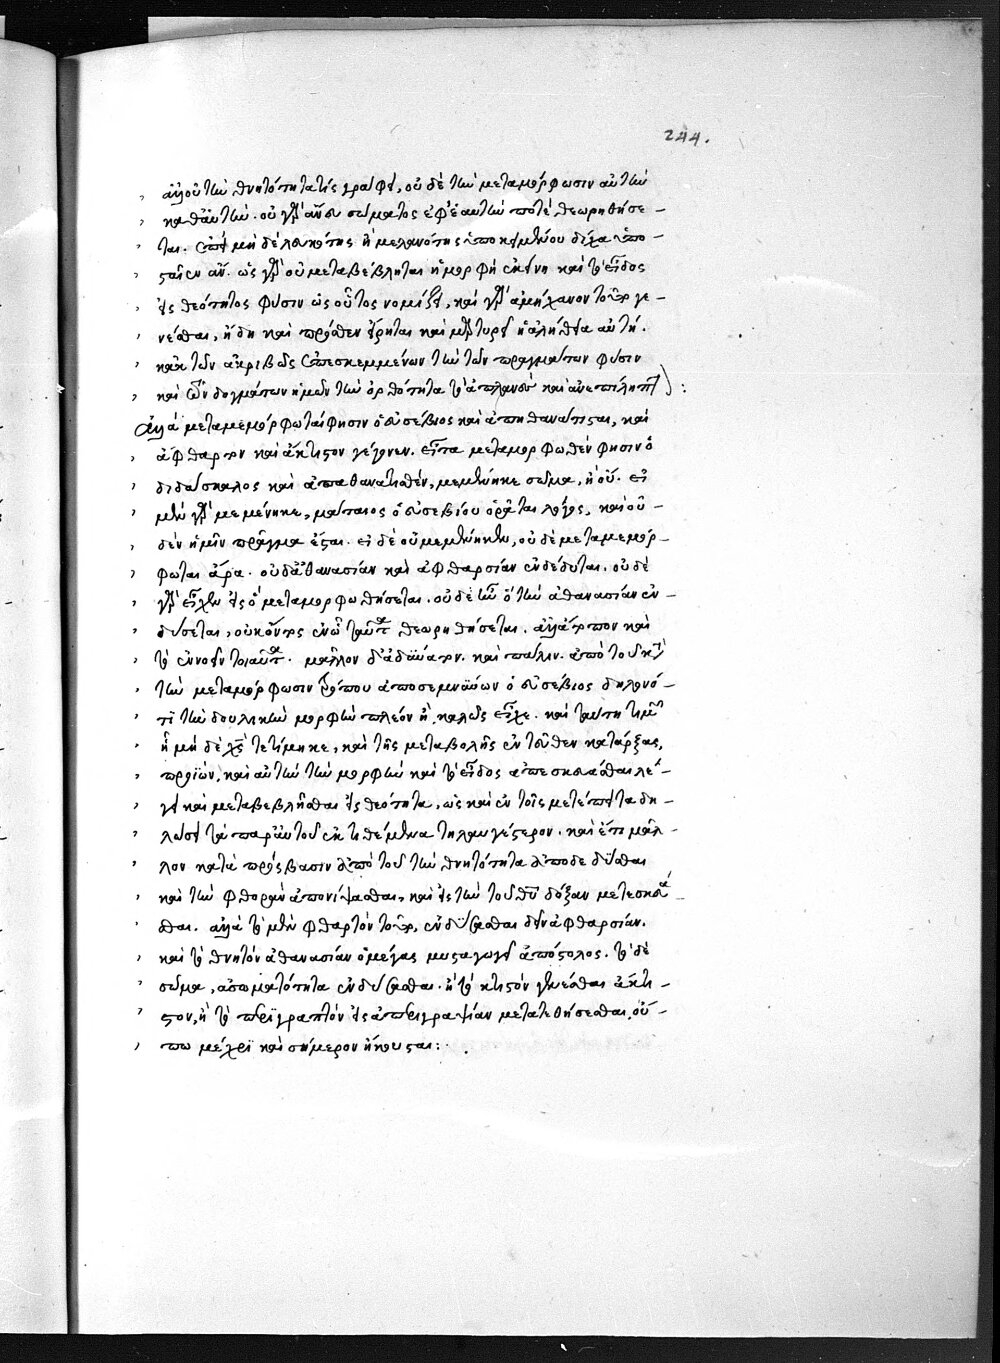 244.
ἀλλ' οὐ τὴν θνητότητα τίς γράφει, οὐδὲ τὴν μεταμόρφωσιν αὐτὴν
καθ' αὑτήν. οὐ γὰρ ἄνευ σώματος ἐφ' ἑαυτὴν ποτὲ θεωρηθήσε-
ται. ἐπεὶ μὴ δὲ λευκότης ἢ μελανότης ὑποκειμένου δίχα ὑπο-
σταῖεν ἄν. ὡς γὰρ οὐ μεταβέβληται ἡ μορφὴ ἐκείνη καὶ τὸ εἶδος
εἰς θεότητος φύσιν ὡς οὗτος νομίζει, καὶ γὰρ ἀμήχανον τοῦτο γε-
νέσθαι, ἤδη καὶ πρόσθεν εἴρηται καὶ μαρτυρεῖ ἡ ἀλήθεια αὐτή.
κἀκ τῶν ἀκριβῶς ἐπεσκεμμένων τὴν τῶν πραγμάτων φύσιν
καὶ τῶν δογμάτων ἡμῶν τὴν ὀρθότητα τὸ ἀπλανὲς καὶ ἀνεπίληπτον:
Ἀλλὰ μεταμεμόρφωται φησὶν ὁ εὐσέβιος καὶ ἀπηθανάτισται, καὶ
ἄφθαρτον καὶ ἄκτιστον γέγονεν. εἶτα μεταμορφωθέν φησιν ὁ
διδάσκαλος καὶ ἀπαθανατισθέν, μεμένηκε σῶμα, ἢ οὔ. εἰ
μὲν γὰρ μεμένηκε, μάταιος ὁ εὐσεβίου ὁρᾶται λόγος, καὶ οὐ-
δὲν ἡμῖν πρᾶγμα ἔσται. εἰ δὲ οὐ μεμένηκεν, οὐδὲ μεταμεμόρ-
φωται ἄρα. οὐδ' ἀθανασίαν καὶ ἀφθαρσίαν ἐνδέδυται. οὐδὲ
γὰρ εἶχεν εἰς ὃ μεταμορφωθήσεται. οὐδὲ ἦν ὃ τὴν ἀθανασίαν ἐν-
δύσεται, οὐκοῦν τις ἐν ᾧ ταῦτα θεωρηθήσεται. ἀλλ' ἄτοπον καὶ
τὸ ἐννοεῖν τοιαῦτα. μᾶλλον δ' ἀδύνατον. καὶ πάλιν. ἀπὸ τοῦ
τὴν μεταμόρφωσιν τρόπου ἀποσεμνύνων ὁ εὐσέβιος δηλονό-
τι τὴν δουλικὴν μορφὴν πλέον ἢ καλῶς εἶχε. καὶ ταύτῃ τιμᾶν
ἢ μὴ δὲ χριστὸς τετίμηκε, καὶ τῆς μεταβολῆς ἐντεῦθεν κατάρξας,
προϊών, καὶ αὐτὴν τὴν μορφὴν καὶ τὸ εἶδος ἀπεσκευάσθαι λέ-
γει καὶ μεταβεβλῆσθαι εἰς θεότητα, ὡς καὶ ἐν τοῖς μετέπειτα δη-
λώσει τὰ παρ' αὐτοῦ ἐκτιθέμενα τηλαυγέστερον. καὶ ἔτι μᾶλ-
λον κατὰ πρόσβασιν ἀπὸ τοῦ τὴν θνητότητα ἀποδεδύσθαι
καὶ τὴν φθορὰν ἀπονίψασθαι, καὶ εἰς τὴν τοῦ θεοῦ δόξαν μετεσκευά
σθαι. ἀλλὰ τὸ μὲν φθαρτὸν τοῦτο, ἐνδύσασθαι δεῖν ἀφθαρσίαν.
καὶ τὸ θνητὸν ἀθανασίαν ὁ μέγας μυσταγωγεῖ ἀπόστολος. τὸ δὲ
σῶμα, ἀσωματότητα ἐνδύσασθαι. ἢ τὸ κτιστὸν γενέσθαι ἄκτι-
στον, ἢ τὸ περιγραπτὸν εἰς ἀπεριγραψίαν μετατεθήσεσθαι, οὔ-
πω μέχρι καὶ σήμερον ἤκουσται: